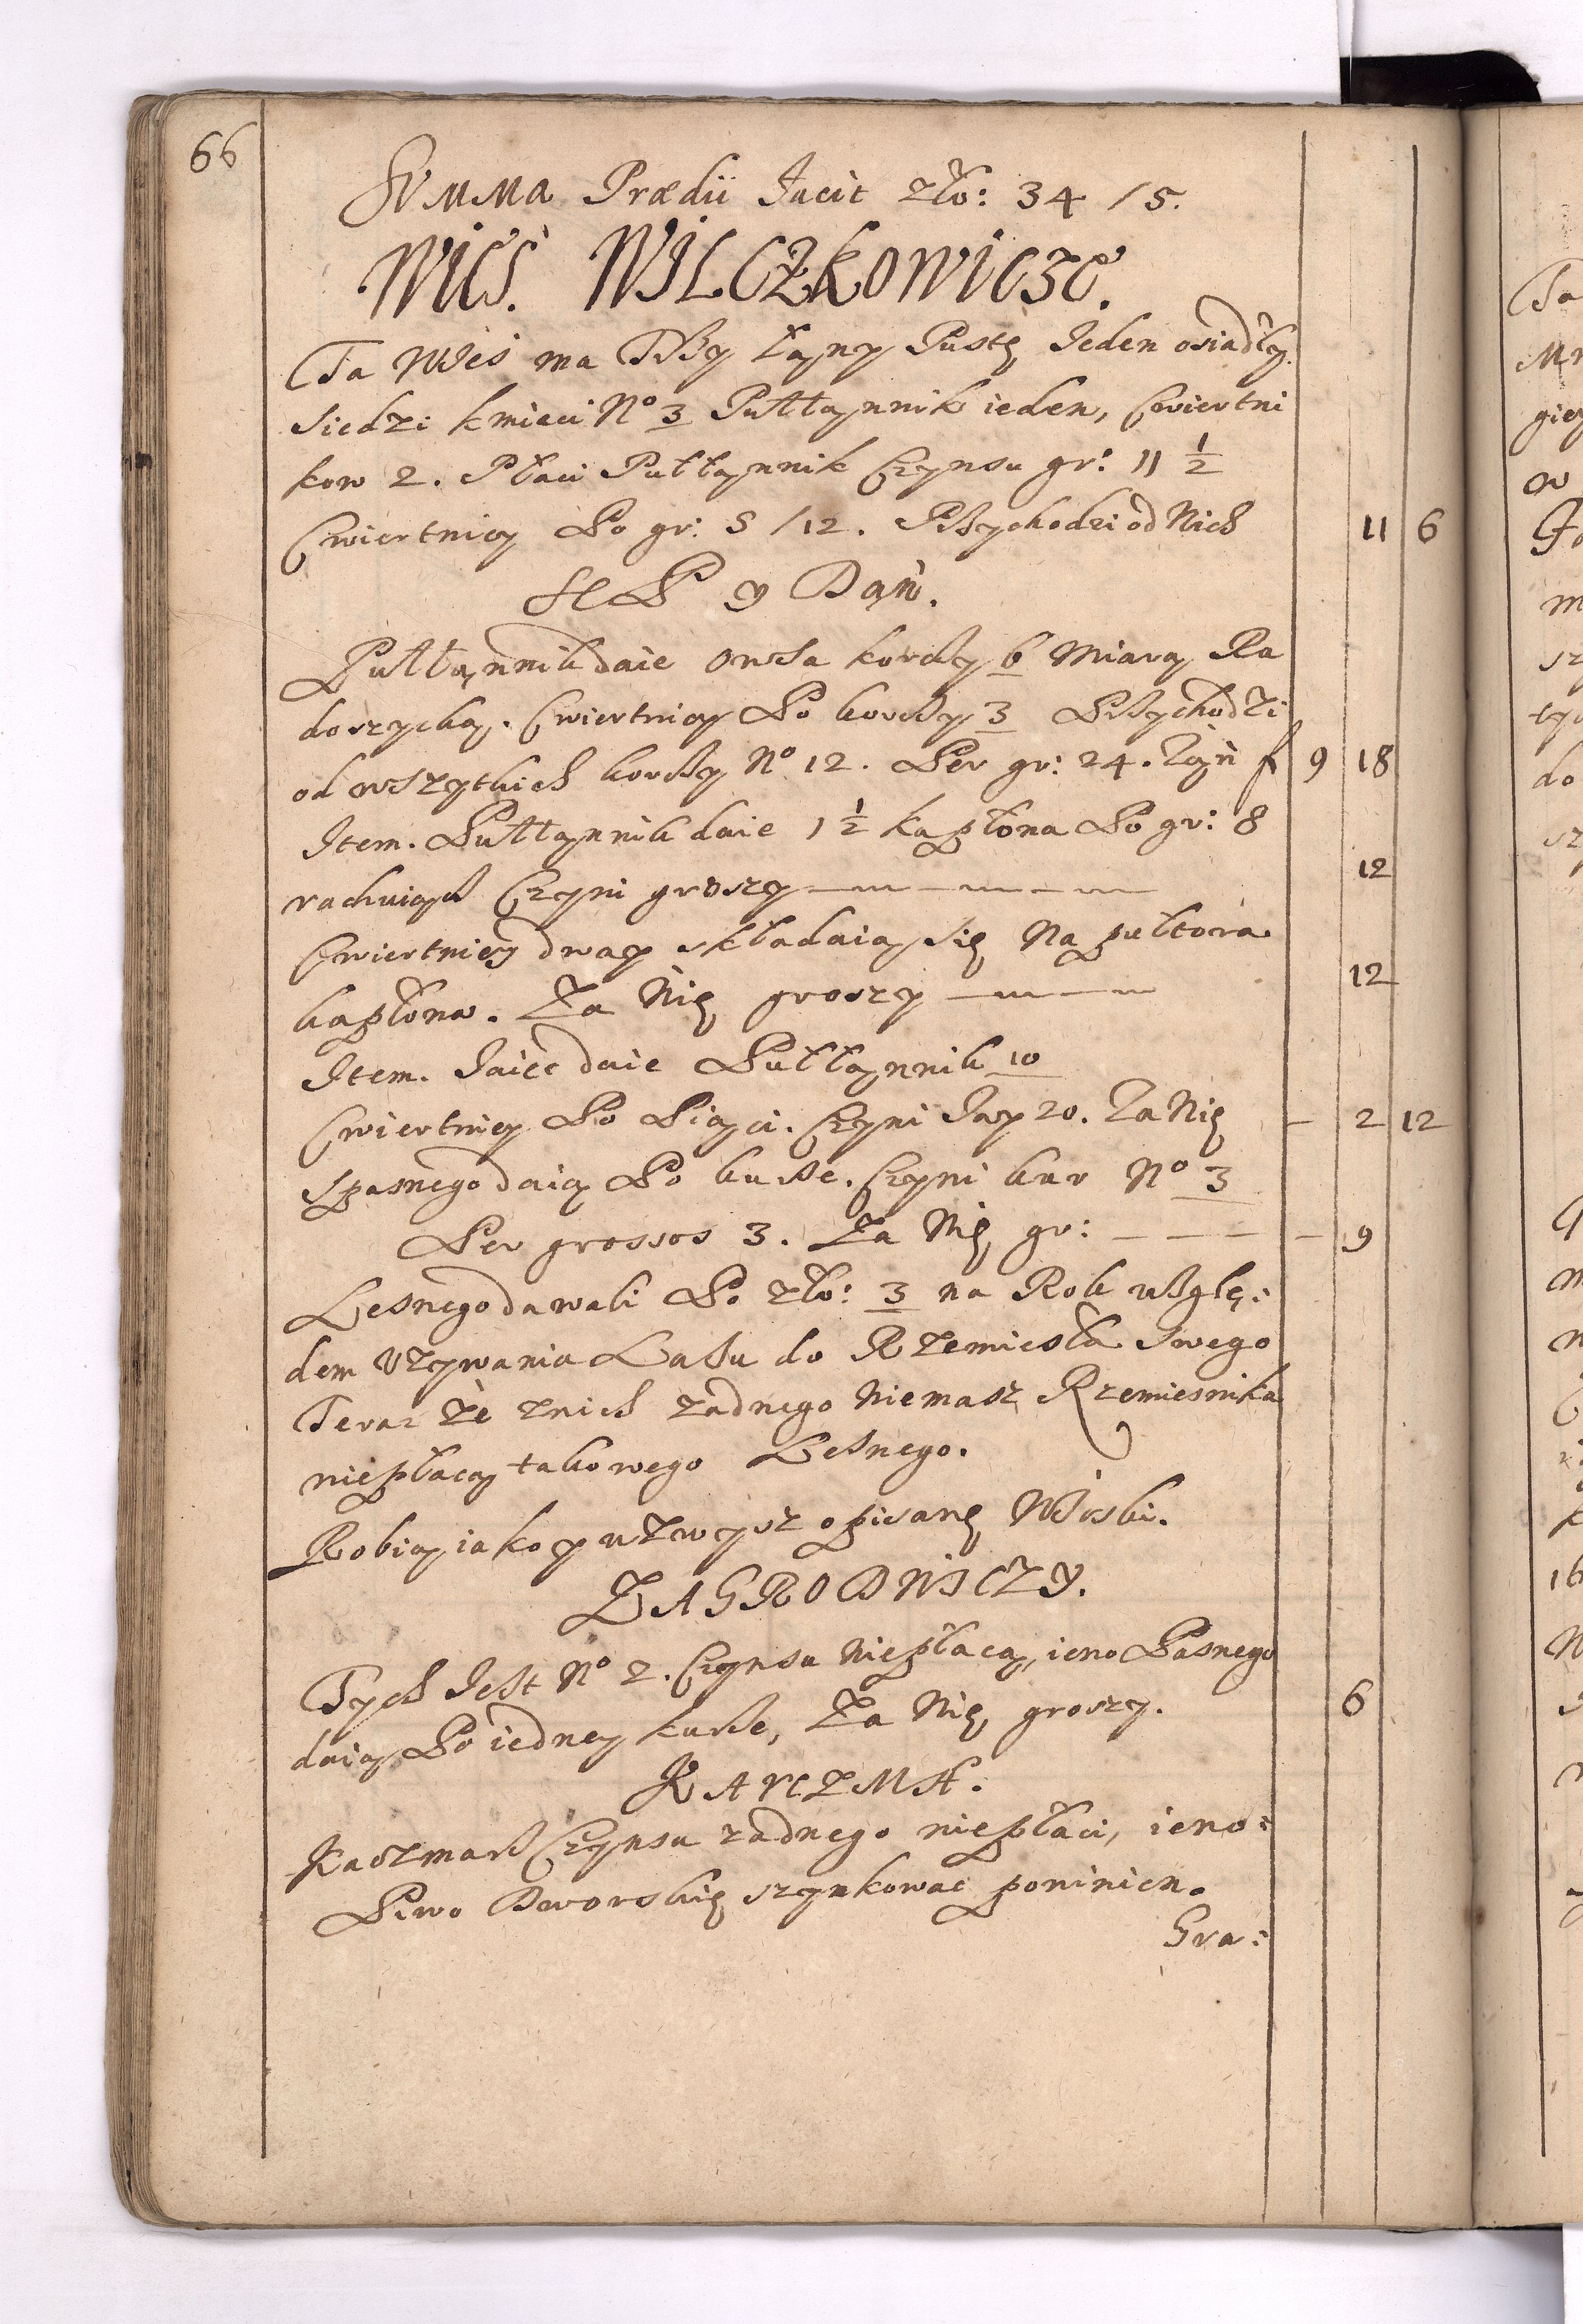 66
SVMMa Prædii Facit zło: 34 / 5.
WIeś. WILCZKOWICZe.
Ta Wieś ma Trzy Łany Pustę, Jeden osiadły.
Siedzi kmieci No 3 Pułłannik ieden, Cwiertni
kow 2. Płaci Pułłannik Czynsu gr: 11 1/2
Cwiertnicy Po gr: 5 /12. Przychodzi od Nich 11 6
SeP y Dań.
Pułłannik daie owsa korcy 6 Miary Ra
doszycką. Cwiertnicy Po korcy 3 Przychodzi
od wszytkich korcy No 12. Per gr: 24. f 9 18
Item. Pułłannik daie 1 1/2 kapłona Po gr: 8
rachuiąc Czyni groszy 12
Cwiertnicy dway składaią się, Na pułtora
kapłona. Za Nię groszy 12
Item. Jaiec daie Pułłannik 10
Cwiertnicy Po Piąci. Czyni Jay 20. Za Nię - 2 12
Spasnego daią Po kurze. Czyni kur No 3
Per grossos 3. Za Nię, gr: - - - - 9
Lesnego dawali Po zło: 3 na Rok wzglę:
dem Vzywania Lasu do Rzemiesła Swego
Teraz że znich żadnego Niemasz Rzemiesnika
niepłacą takowego Lesnego.
Robią iako y wzwysz opisanę Włoski.
ZAGRODNICZY.
Tych Jest No 2. Czynsu Niepłacą, ieno Pasnego
daią Po iedney kurze, Za Nię, groszy. 6
KARCZMA.
Kaczmarz Czynsu zadnego niepłaci, ieno:
Piwo Dworskię szynkować powinien.
Gra: